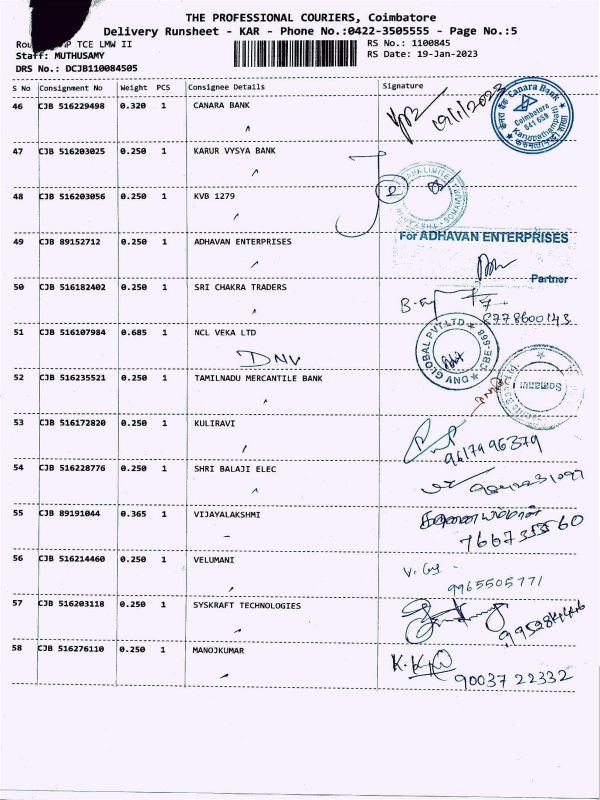 THE PROFESSIONAL COURIERS, Coimbatore
Delivery Runsheet - KAR - Phone No.:0422-3505555 - Page No.:5
TCE LMW II
RS No.: 1100845
Staff: MUTHUSAMY
RS Date: 19-Jan-2023
DRS No.: DCJB110084505
S No Consignment No Weight PCS Consignee Details Signature
46 CJB 516229498 0.320 1 CANARA BANK 19/1/2023
Canara Bank
Coimbatore
641 659
Karumathampatti
47 CJB 516203025 0.250 1 KARUR VYSYA BANK
48 CJB 516203056 0.250 1 KVB 1279
49 CJB 89152712 0.250 1 ADHAVAN ENTERPRISES
For ADHAVAN ENTERPRISES
Partner
50 CJB 516182402 0.250 1 SRI CHAKRA TRADERS
8778600143
51 CJB 516107984 0.685 1 NCL VEKA LTD
DNV
DNV GLOBAL PVT LTD
52 CJB 516235521 0.250 1 TAMILNADU MERCANTILE BANK
53 CJB 516172820 0.250 1 KULIRAVI
9617996379
54 CJB 516228776 0.250 1 SHRI BALAJI ELEC
55 CJB 89191044 0.365 1 VIJAYALAKSHMI
56 CJB 516214460 0.250 1 VELUMANI
9965505771
57 CJB 516203118 0.250 1 SYSKRAFT TECHNOLOGIES
58 CJB 516276110 0.250 1 MANOJKUMAR
90037 22332